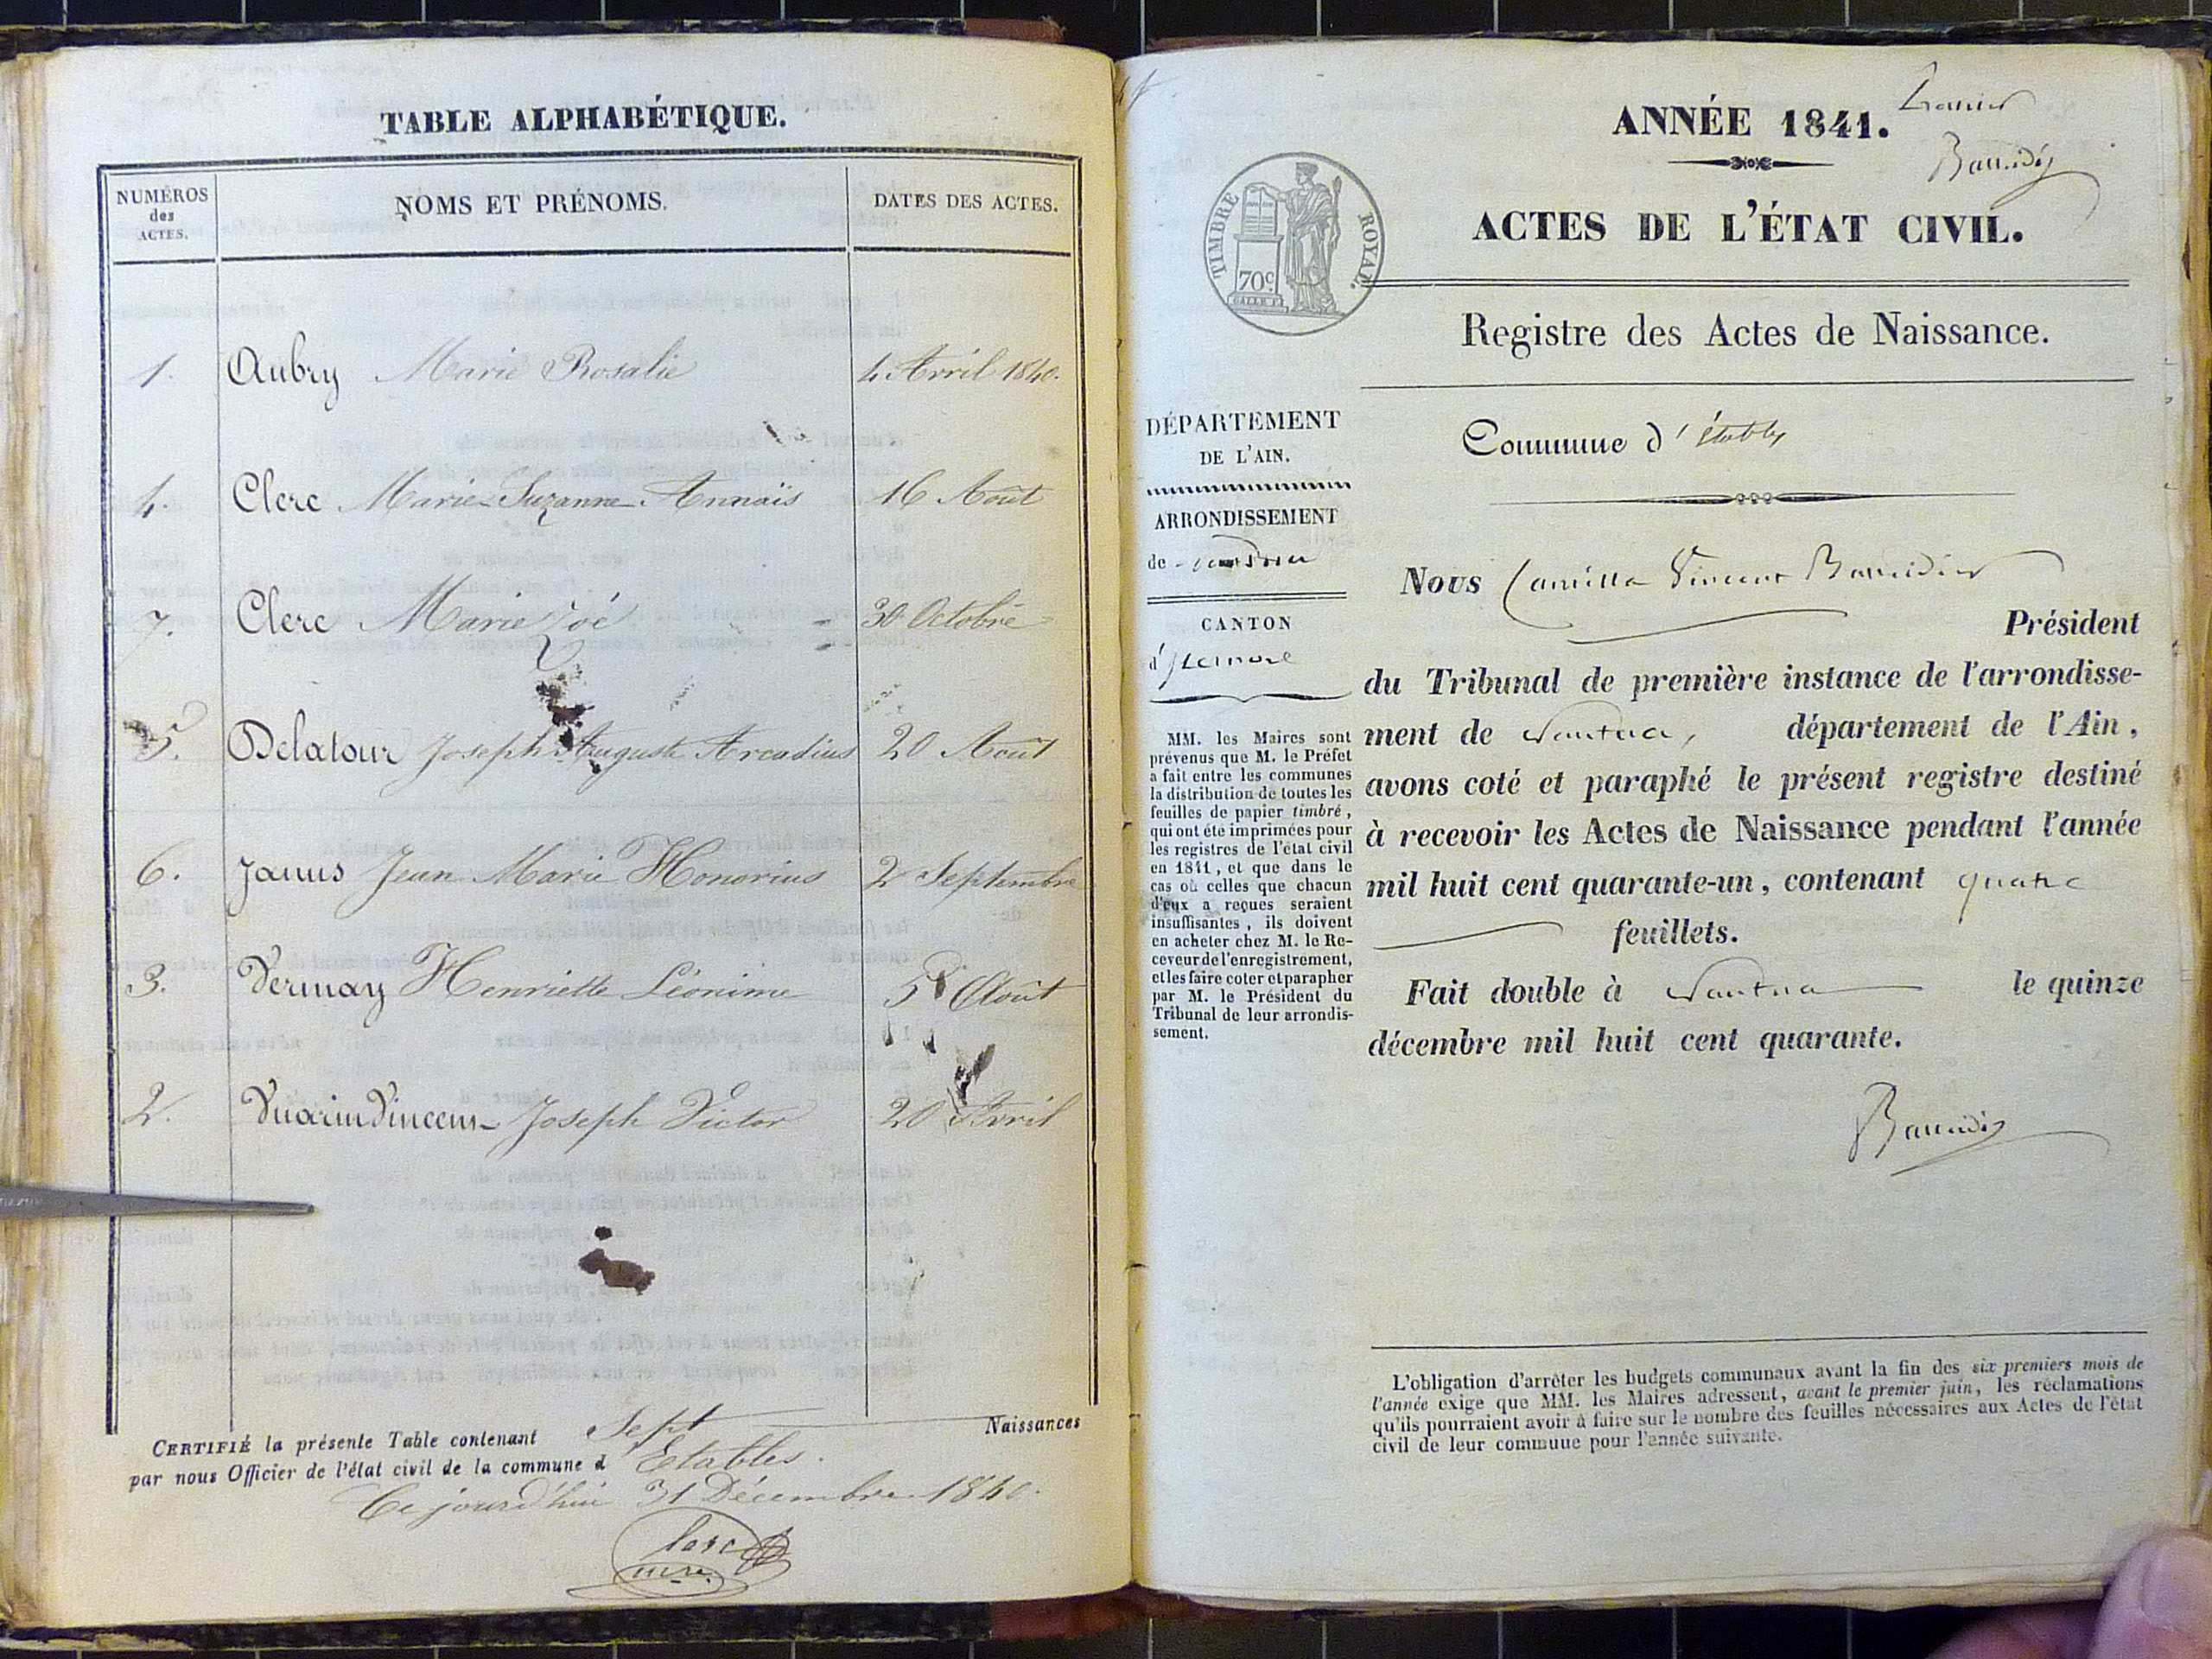 TABLE ALPHABÉTIQUE.
NUMÉROS des ACTES.
NOMS ET PRÉNOMS.
DATES DES ACTES.
1. Aubry Marie Rosalie 4 Avril 1840.
4. Clerc Marie-Suzanne-Annaïs 16 Août
7. Clerc Marie Zoé 30 Octobre
5. Delatour Joseph Auguste Arcadius 20 Août
6. Janus Jean Marie Honorius 2 Septembre
3. Vermay Henriette Léonime 5 Août
2. Vuarin Vincent Joseph Victor 20 Avril
CERTIFIÉ la présente Table contenant Sept Naissances
par nous Officier de l'état civil de la commune d'Etables.
Ce jourd'hui 31 Décembre 1840.
mre.
ANNÉE 1841.
Premier
TIMBRE ROYAL.
70c
ACTES DE L'ÉTAT CIVIL.
Registre des Actes de Naissance.
DÉPARTEMENT
DE L'AIN.
ARRONDISSEMENT
de Nantua
CANTON
d'Izernore
MM. les Maires sont
prévenus que M. le Préfet
a fait entre les communes
la distribution de toutes les
feuilles de papier timbré,
qui ont été imprimées pour
les registres de l'état civil
en 1841, et que dans le
cas où celles que chacun
d'eux a reçues seraient
insuffisantes, ils doivent
en acheter chez M. le Re-
ceveur de l'enregistrement,
et les faire coter et parapher
par M. le Président du
Tribunal de leur arrondis-
sement.
Commune d'étables
Nous Camille Vincent
Président
du Tribunal de première instance de l'arrondisse-
ment de Nantua, département de l'Ain,
avons coté et paraphé le présent registre destiné
à recevoir les Actes de Naissance pendant l'année
mil huit cent quarante-un, contenant quatre
feuillets.
Fait double à Nantua le quinze
décembre mil huit cent quarante.
L'obligation d'arrêter les budgets communaux avant la fin des six premiers mois de
l'année exige que MM. les Maires adressent, avant le premier juin, les réclamations
qu'ils pourraient avoir à faire sur le nombre des feuilles nécessaires aux Actes de l'état
civil de leur commune pour l'année suivante.